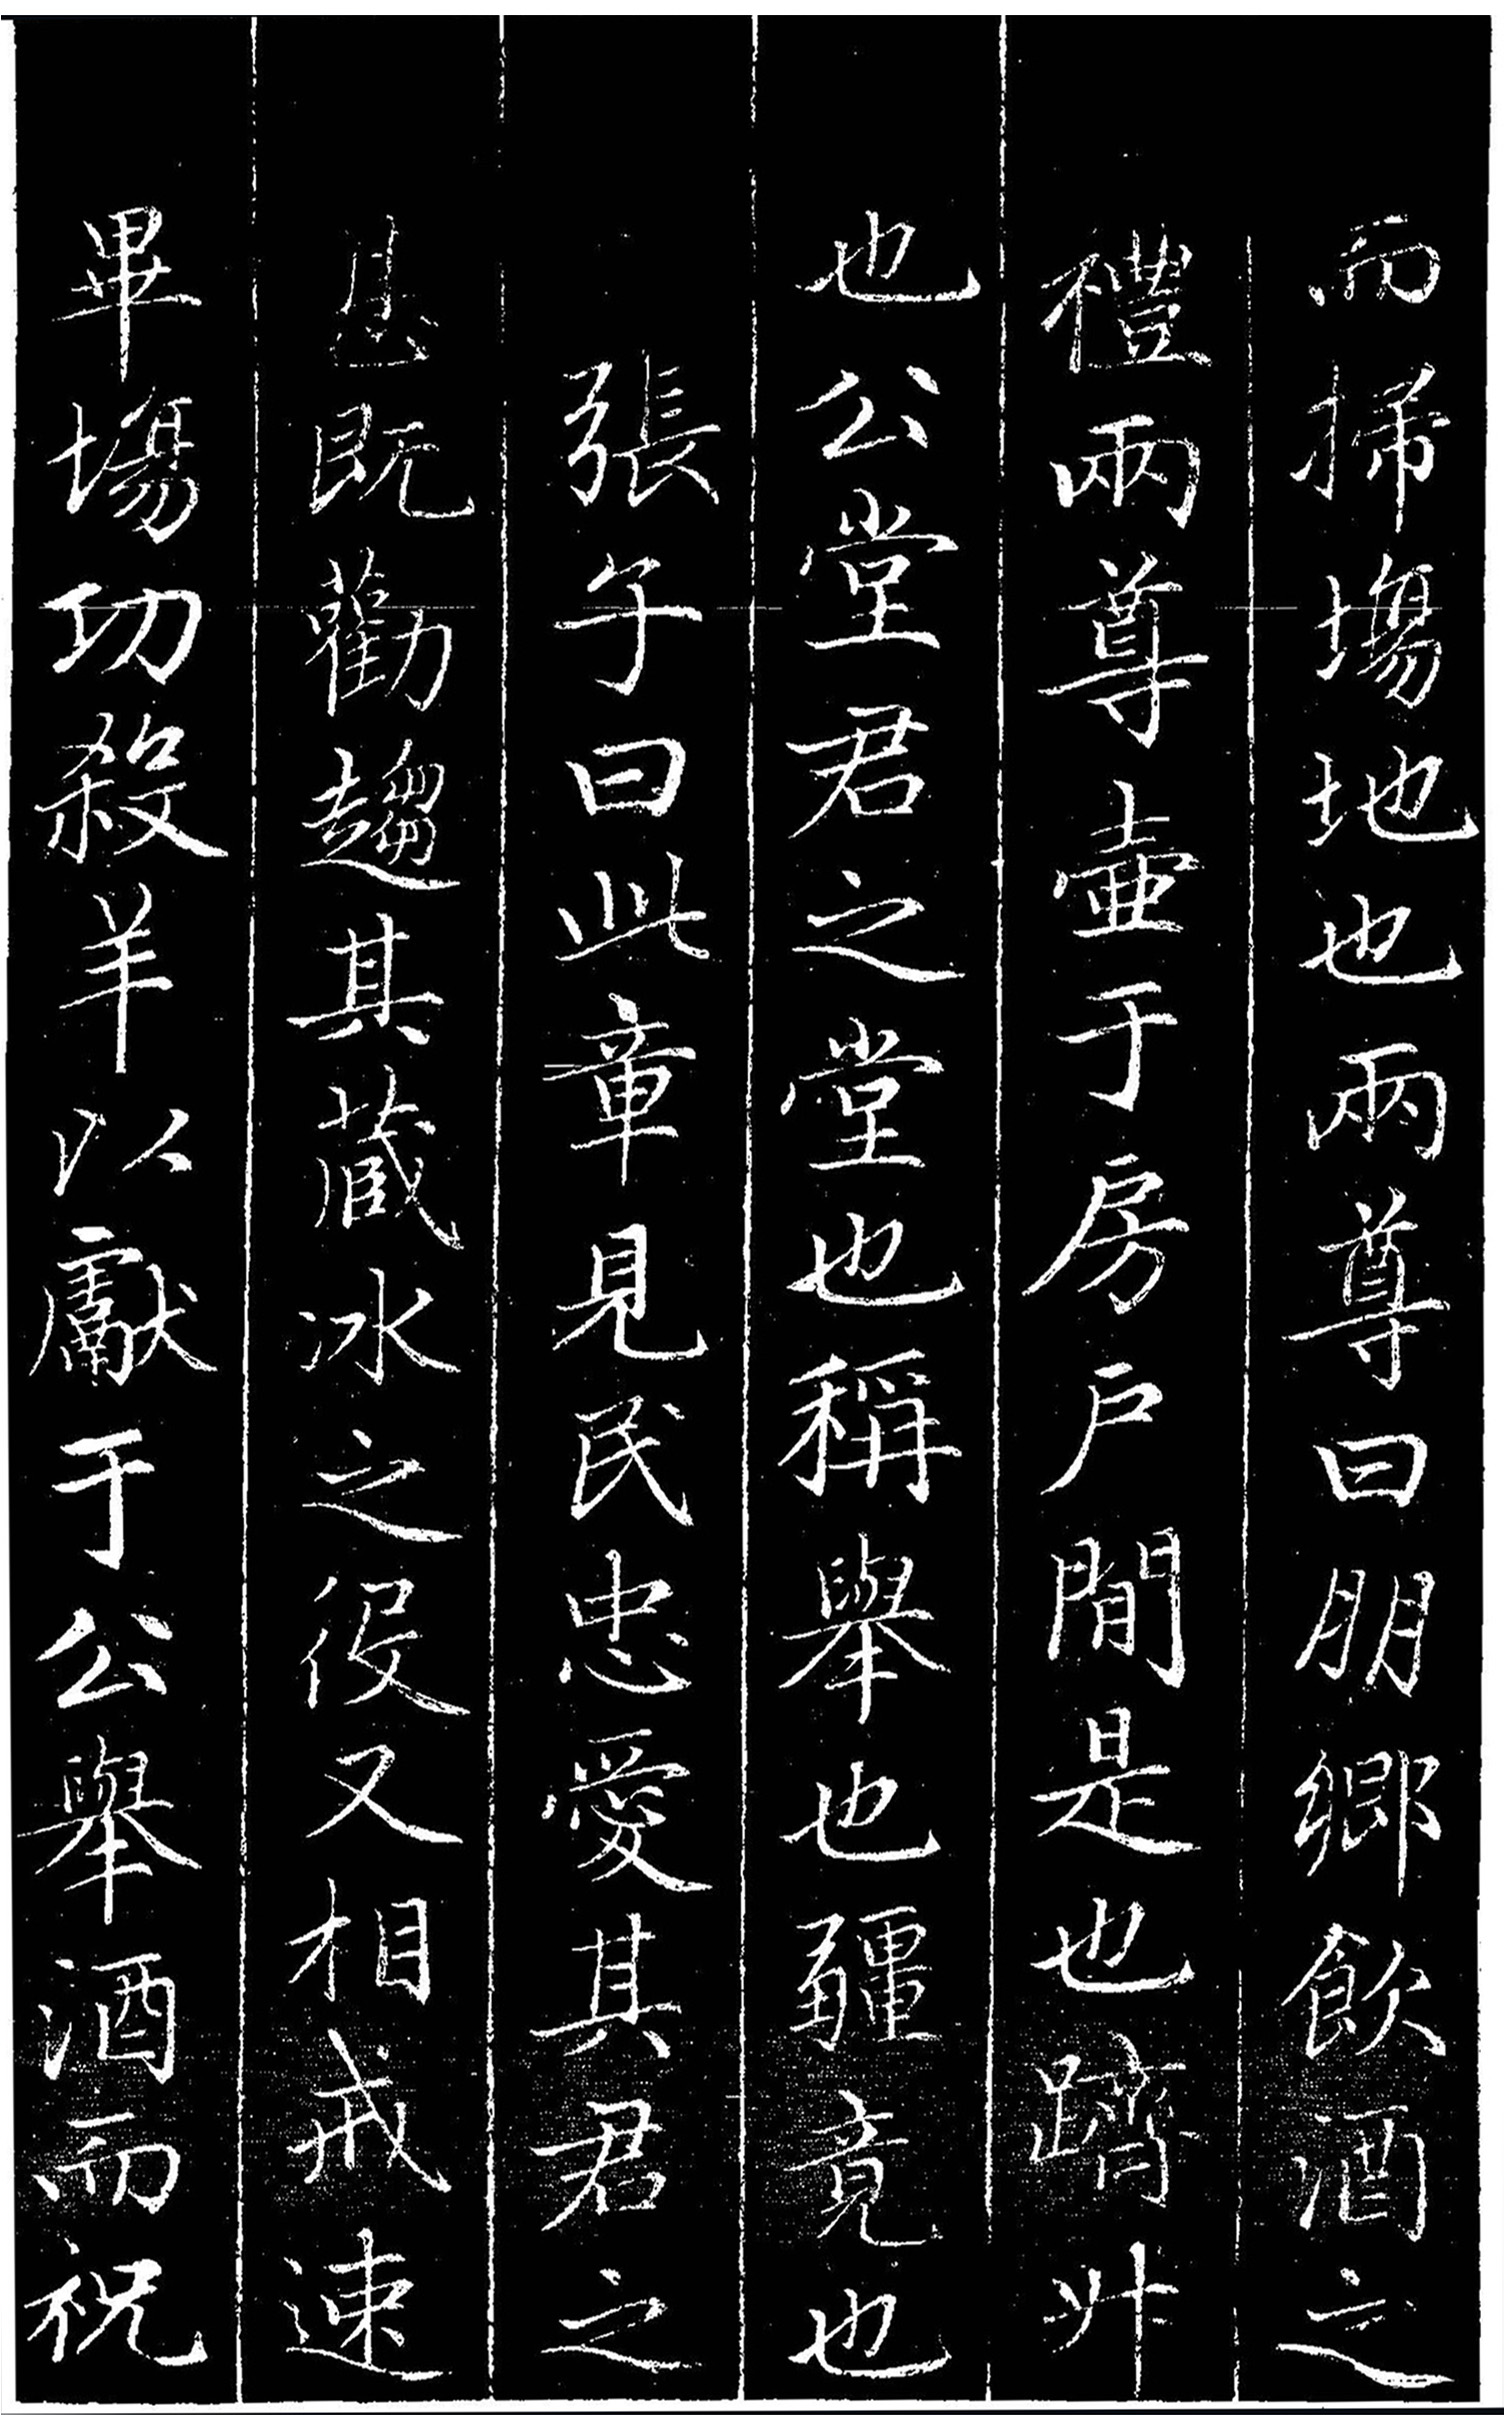 而掃場地也兩尊曰朋鄉飲酒之
禮兩尊壷于房戶間是也躋升
也公堂君之堂也稱舉也疆竟也
張子曰此章見民忠愛其君之
甚既勸趨其藏冰之役又相戒速
畢場功殺羊以獻于公舉酒而祝